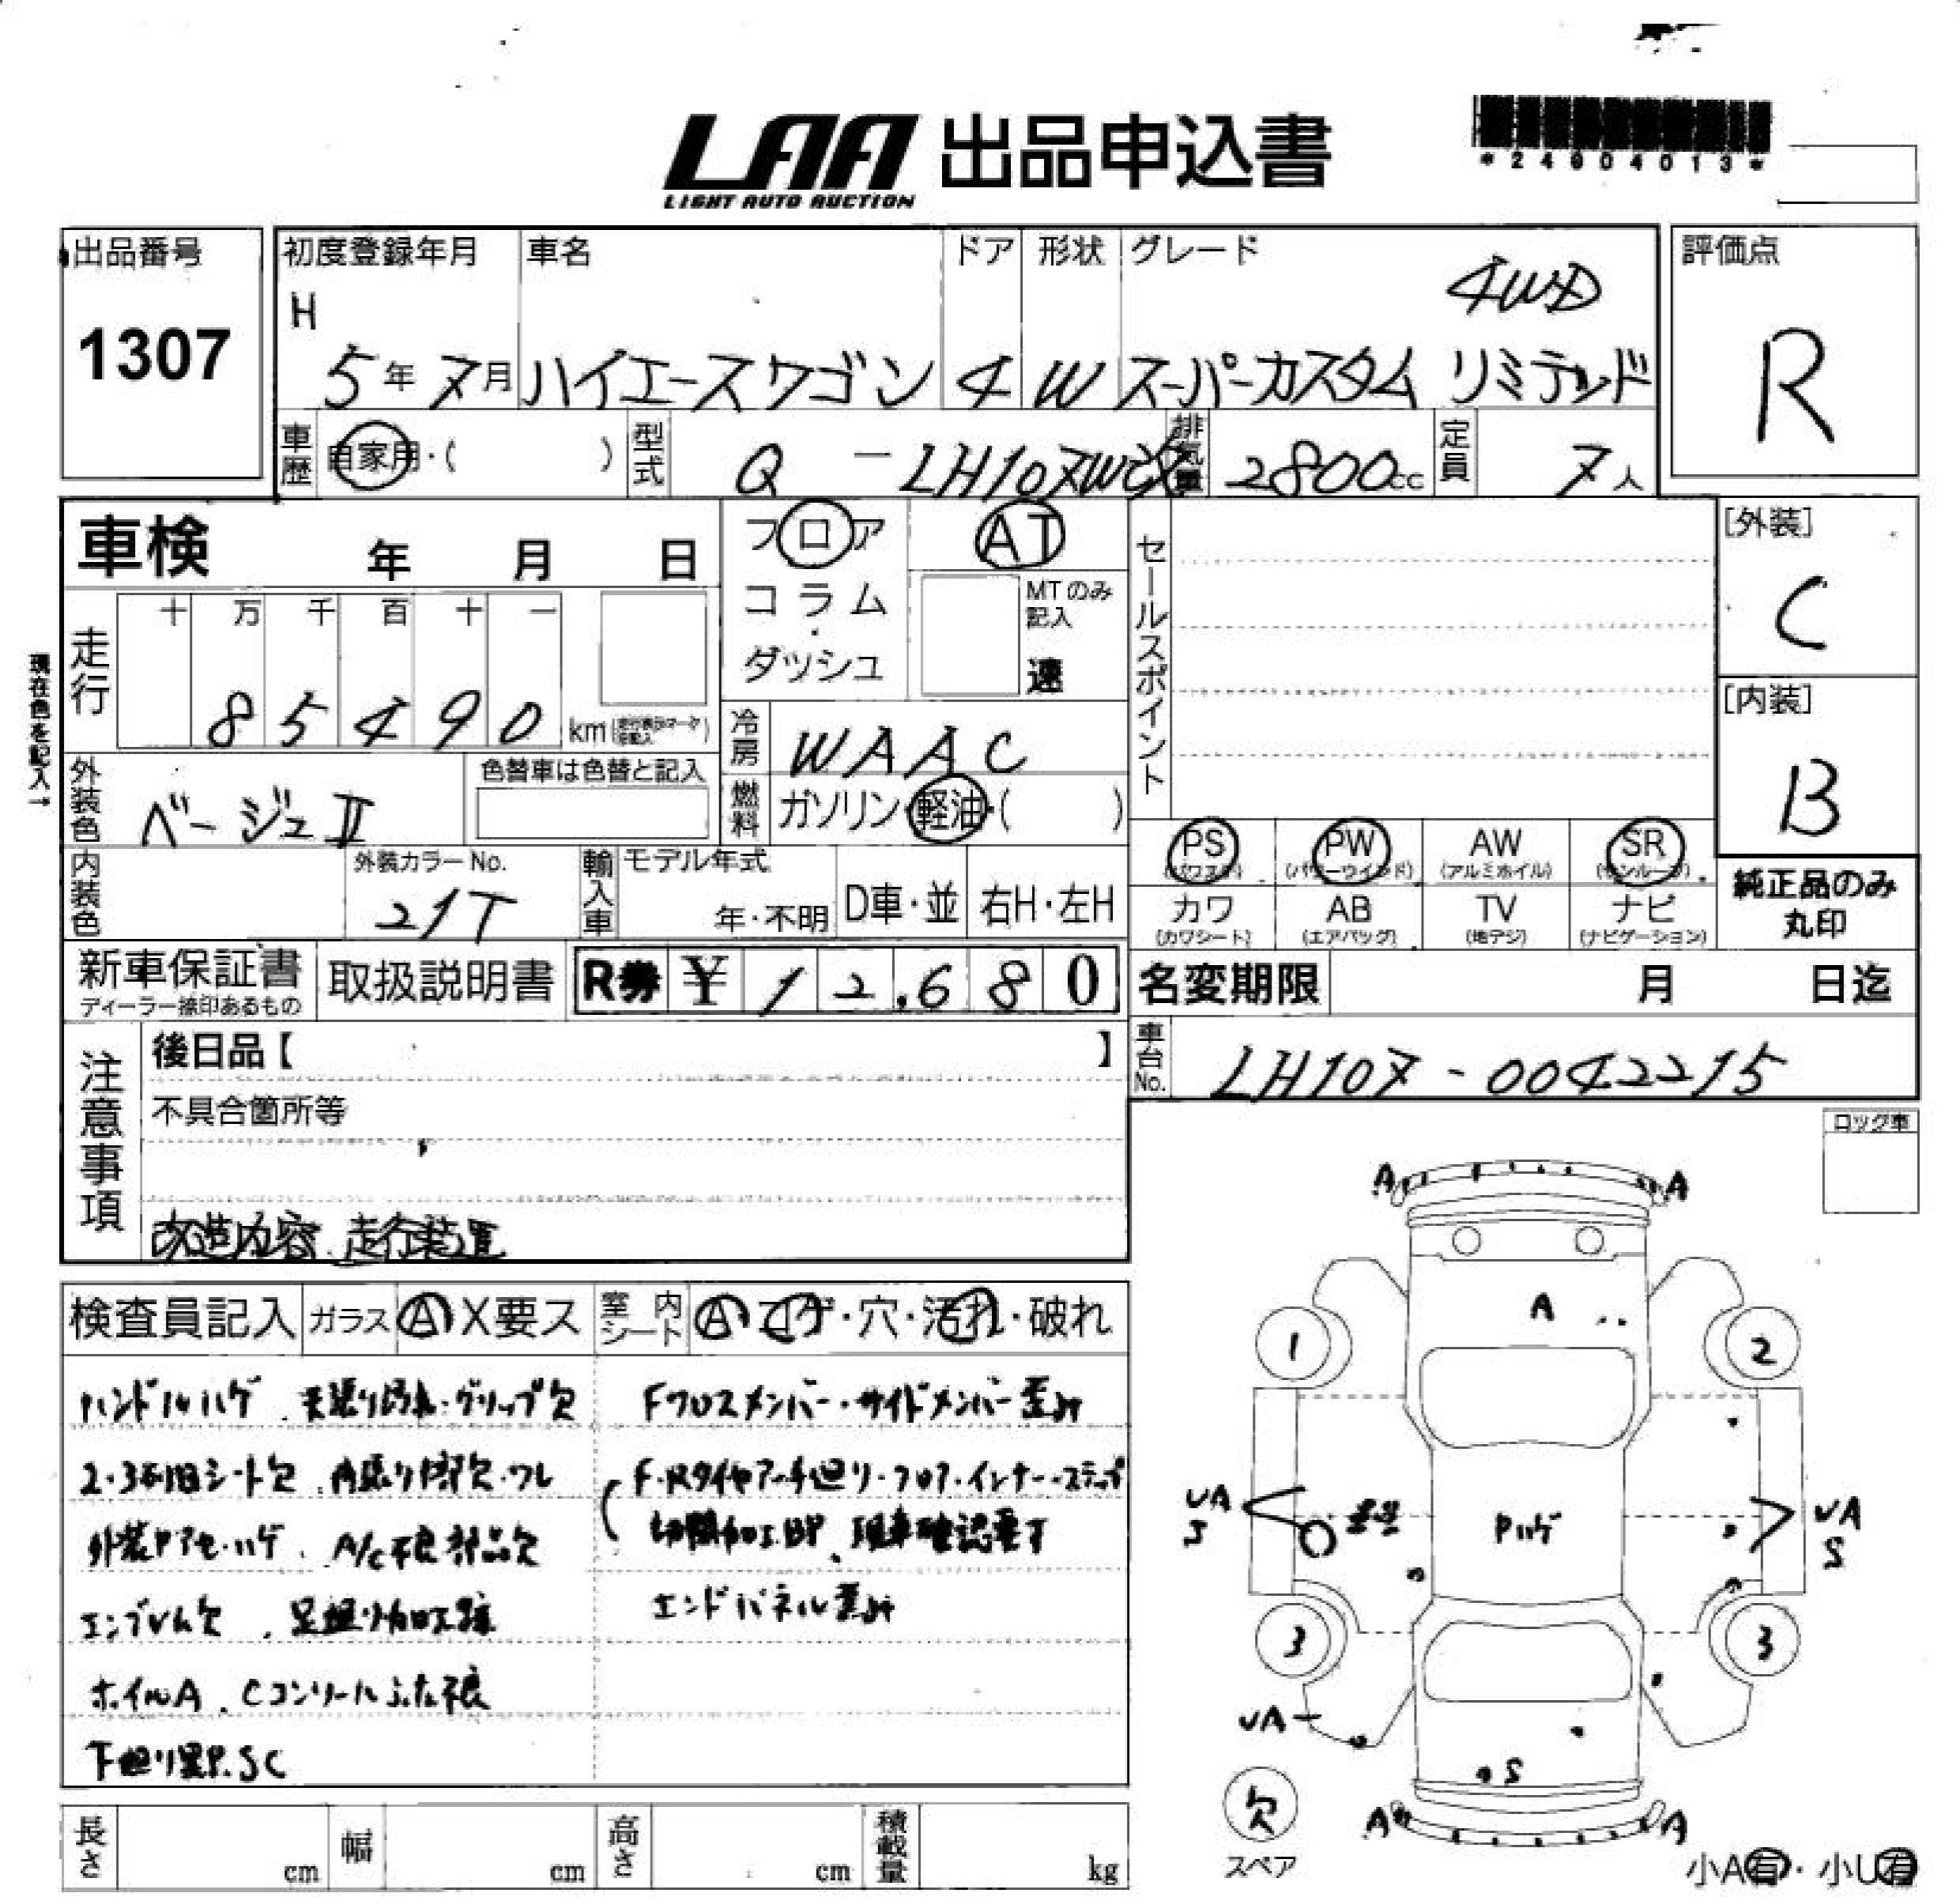 LAA 出品申込書
LIGHT AUTO AUCTION
*24904013*
出品番号
1307
初度登録年月 車名 ドア 形状 グレード
H 4WD
5年 7月 ハイエースワゴン 4 W スーパーカスタム リミテッド
評価点
R
車歴 自家用・( ) 型式 Q - LH107W改 排気量 2800cc 定員 7人
車検 年 月 日
フロア AT
コラム
ダッシュ
MTのみ記入
速
セールスポイント
[外装]
C
[内装]
B
現在色を記入→
走行 十 万 千 百 十 一
85490 km
冷房 WAAC
燃料 ガソリン・軽油・( )
外装色 ベージュII
色替車は色替と記入
PS PW AW SR
(パワステ) (パワーウインド) (アルミホイル) (サンルーフ)
カワ AB TV ナビ
(カワシート) (エアバッグ) (地デジ) (ナビゲーション)
純正品のみ
丸印
内装色
外装カラーNo.
21T
輸入車 モデル年式
年・不明 D車・並 右H・左H
新車保証書
ディーラー捺印あるもの
取扱説明書
R券 ¥ 12,680
名変期限 月 日迄
車台No. LH107-0042215
注意事項
後日品【 】
不具合箇所等
改造内容、走行装置
ロック車
検査員記入 ガラス A X要ス 室内シート A・コゲ・穴・汚れ・破れ
ハンドルハゲ、天張り汚れ・グリップ欠
2・3列旧シート欠、内張り欠・ワレ
外装 ハゲ、A/C不良部品欠
エンブレム欠、足廻り加工跡
ホイルA、Cコンソールふた不良
下廻り P.SC
Fクロスメンバー・サイドメンバー歪み
F・Rタイヤ 廻り・フロア・インナー・ステップ
切開加工 、現車確認要す
エンドパネル歪み
A A
A
1 2
UA
S
Pハゲ
UA
S
3 3
UA
S
A A
欠
スペア
小A有・小U有
長さ cm 幅 cm 高さ cm 積載量 kg